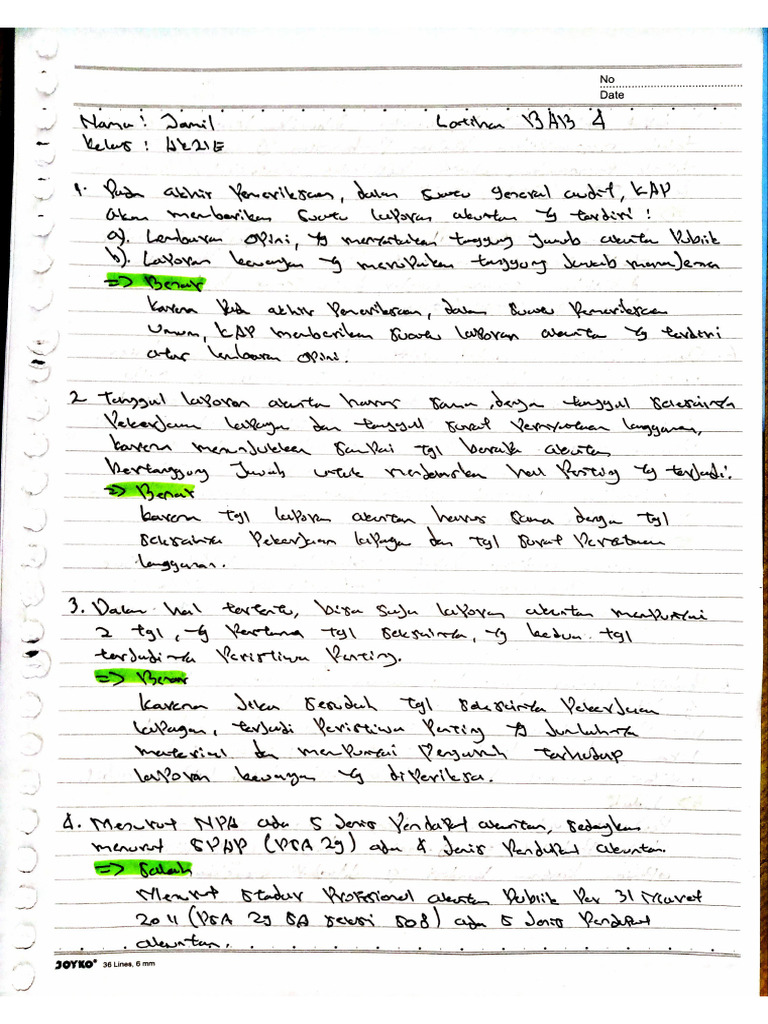 No
Date
Nama : Jamil Latihan BAB 4
Kelas : AK21E
1. Pada akhir Pemeriksaan, dalam suatu general audit, KAP
akan memberikan suatu laporan akuntan yg terdiri :
a). Lembaran opini, yg menyatakan tanggung Jawab akuntan Publik
b). Laporan keuangan yg merupakan tanggung Jawab manajemen
=> Benar
karena Pada akhir Pemeriksaan, dalam suatu Pemeriksaan
umum, KAP memberikan suatu laporan akuntan yg terdiri
atas lembaran opini.
2 Tanggal laporan akuntan harus sama, dengan tanggal selesainya
Pekerjaan lapangan dan tanggal surat Pernyataan langganan,
karena menunjukkan sampai tgl berapa akuntan
bertanggung Jawab untuk menjelaskan hal Penting yg terjadi.
=> Benar
karena tgl laporan akuntan harus sama dengan tgl
selesainya Pekerjaan lapangan dan tgl surat
langganan.
3. Dalam hal tertentu, bisa saja laporan akuntan mempunyai
2 tgl, yg Pertama tgl selesainya, yg kedua tgl
terjadinya Peristiwa Penting.
=> Benar
Karena Jika sesudah tgl selesainya Pekerjaan
lapangan, terjadi Peristiwa Penting yg Jumlahnya
material dan mempunyai Pengaruh terhadap
laporan keuangan yg diPeriksa.
4. Menurut NPA ada 5 Jenis Pendapat akuntan, sedangkan
menurut SPAP (PSA 29) ada 4 Jenis Pendapat akuntan.
=> Salah
Menurut Profesional akuntan Publik Per 31 Maret
2011 (PSA 29 SA seksi 508) ada 5 Jenis Pendapat
akuntan.
JOYKO 36 Lines, 6 mm